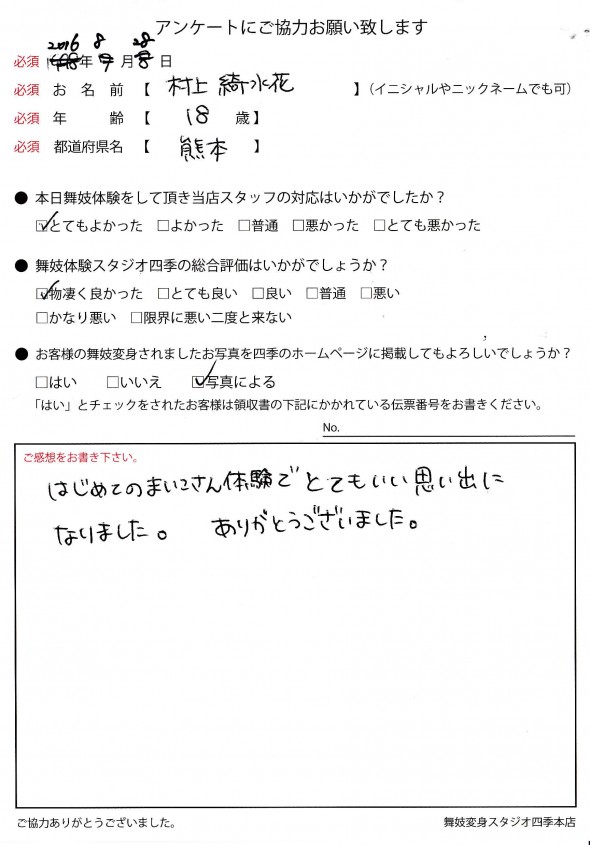 アンケートにご協力お願い致します
必須 2016年 8月 28日
必須 お名前 【 村上 綺水花 】（イニシャルやニックネームでも可）
必須 年齢 【 18 歳】
必須 都道府県名 【 熊本 】
● 本日舞妓体験をして頂き当店スタッフの対応はいかがでしたか？
☑とてもよかった □よかった □普通 □悪かった □とても悪かった
● 舞妓体験スタジオ四季の総合評価はいかがでしょうか？
☑物凄く良かった □とても良い □良い □普通 □悪い
□かなり悪い □限界に悪い二度と来ない
● お客様の舞妓変身されましたお写真を四季のホームページに掲載してもよろしいでしょうか？
□はい □いいえ ☑写真による
「はい」とチェックをされたお客様は領収書の下記にかかれている伝票番号をお書きください。
No.
ご感想をお書き下さい。
はじめてのまいこさん体験でとてもいい思い出に
なりました。 ありがとうございました。
ご協力ありがとうございました。
舞妓変身スタジオ四季本店